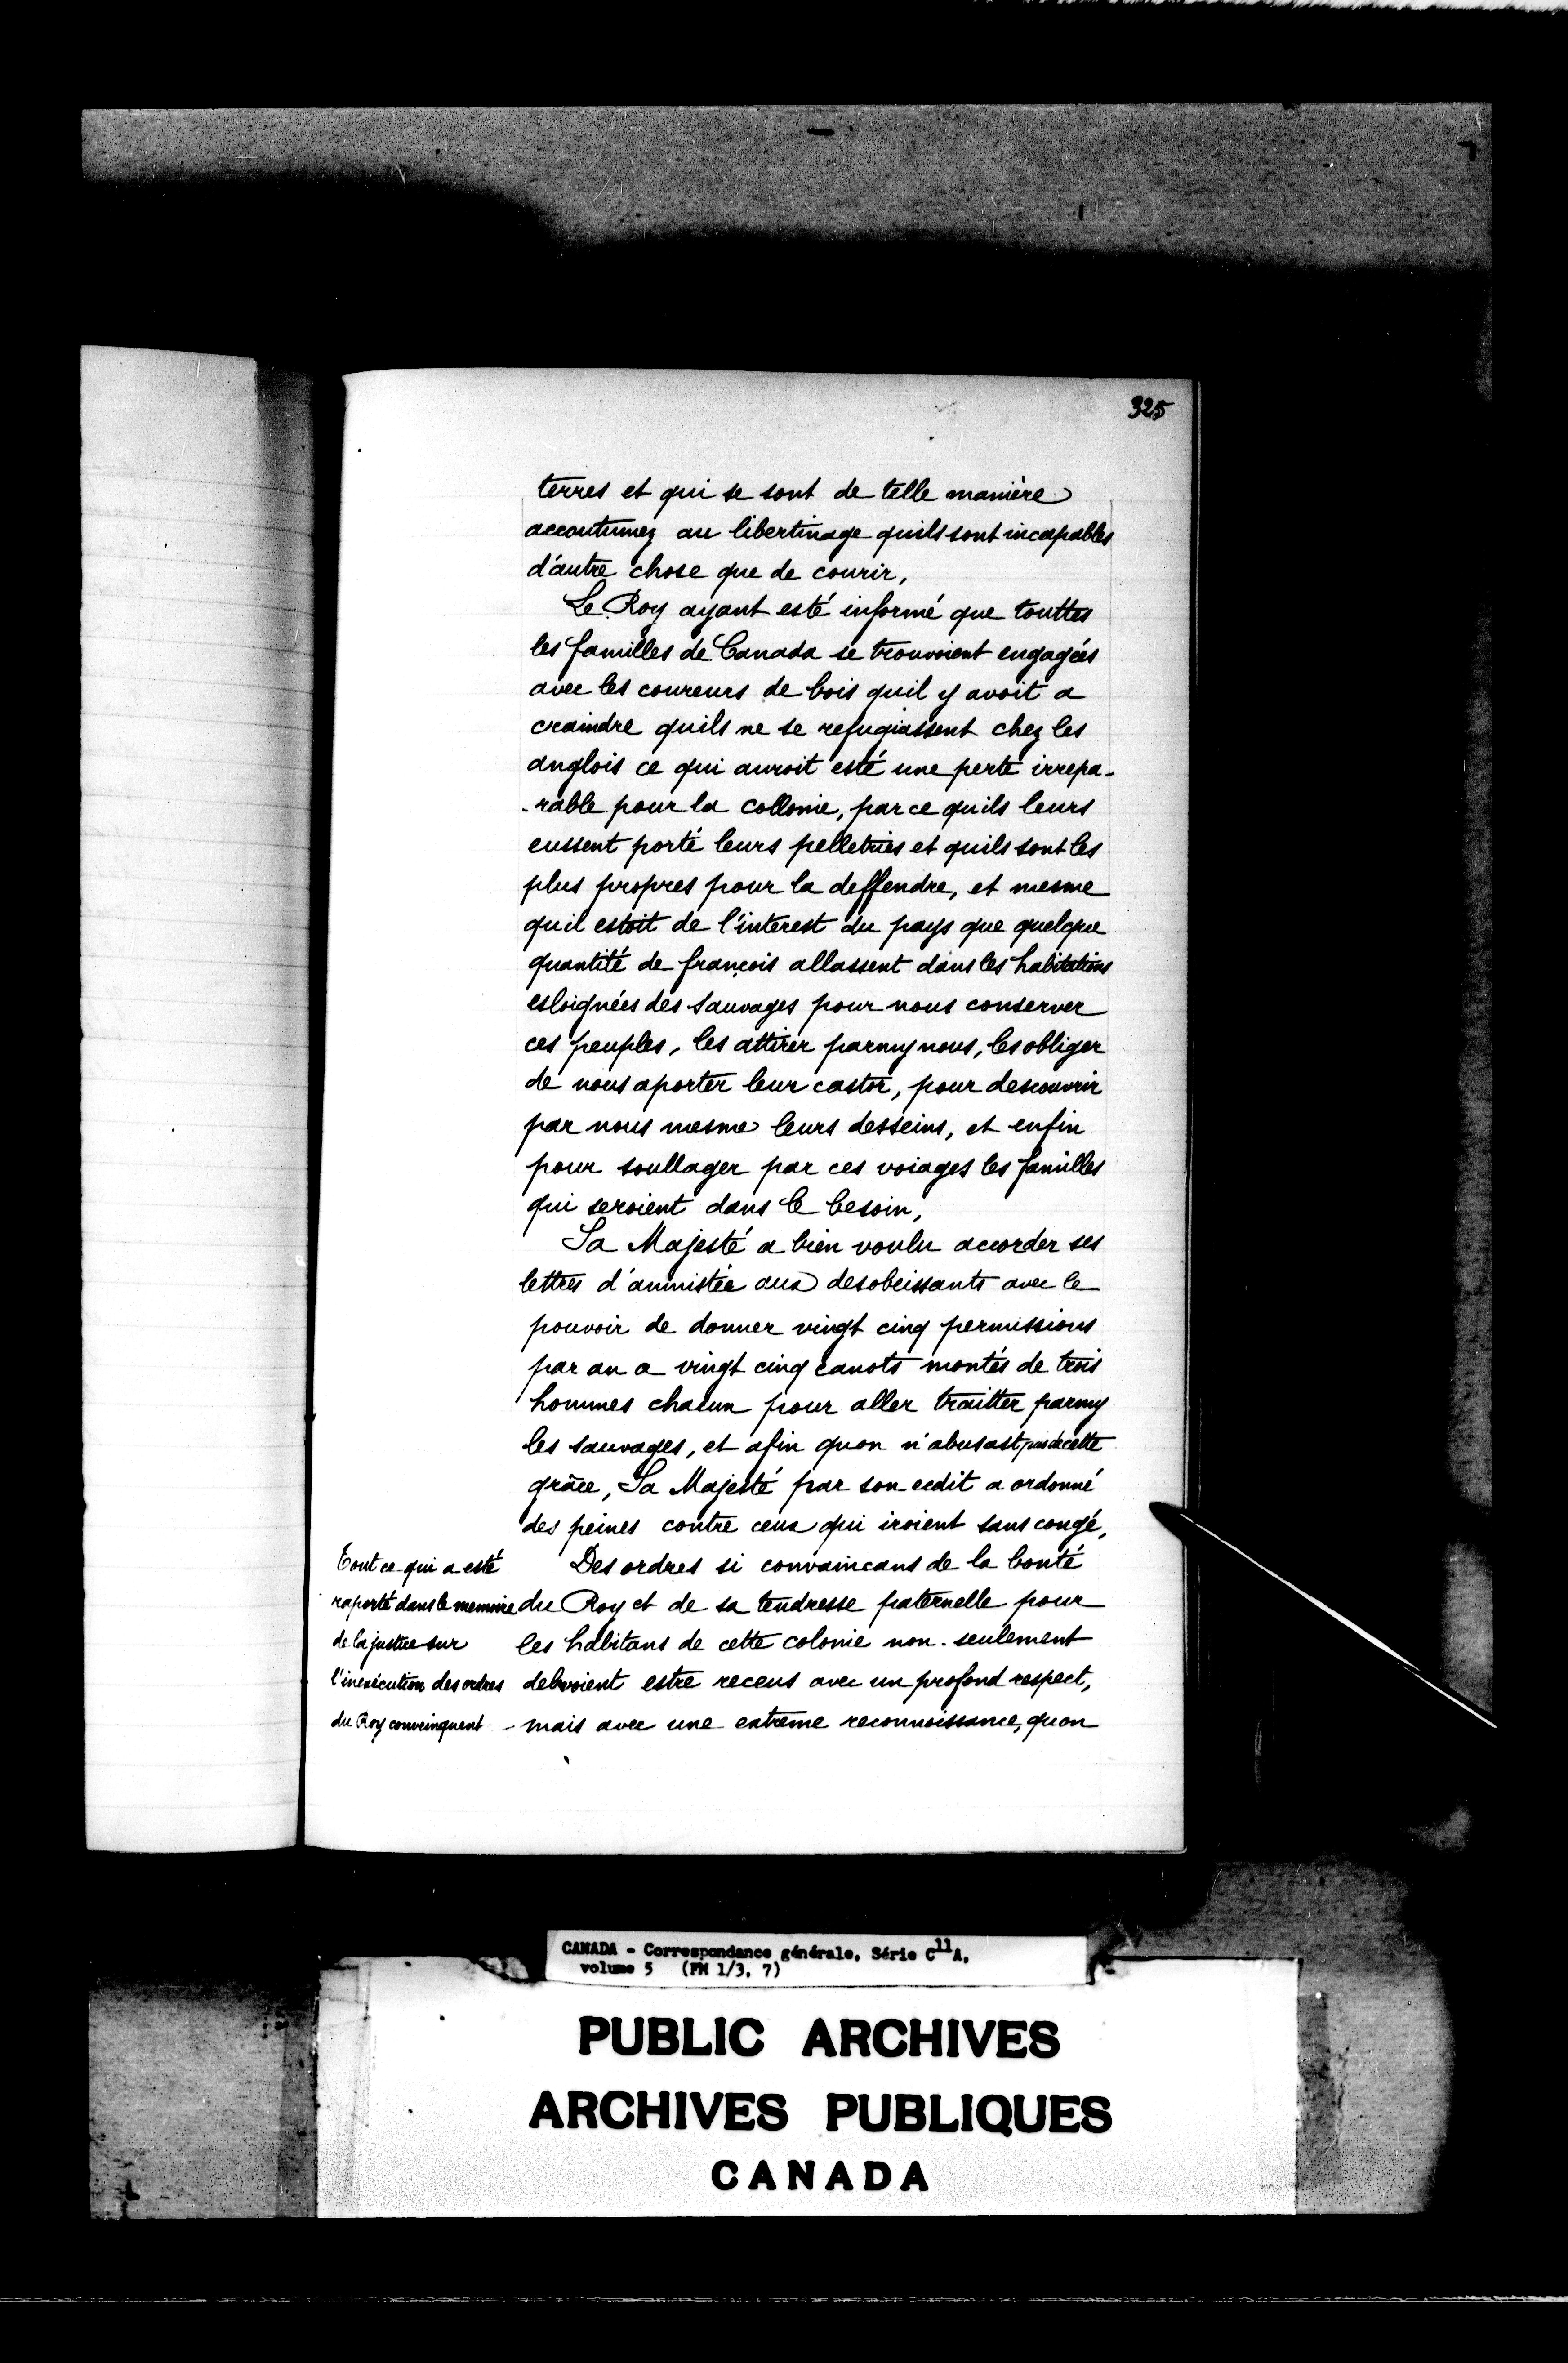 325
terres et qui se sont de telle manière
accoutumez au libertinage quils sont incapables
d'autre chose que de courir,
Le Roy ayant esté informé que touttes
les familles de Canada se trouvoient engagées
avec les coureurs de bois quil y avoit a
craindre quils ne se refugiassent chez les
anglois ce qui auroit esté une perte irrepa-
-rable pour la collonie, parce quils leurs
eussent porté leurs pelletries et quils sont les
plus propres pour la deffendre, et mesme
quil estoit de l'interest du pays que quelque
quantité de françois allassent dans les habitations
esloignées des sauvages pour nous conserver
ces peuples, les attirer parmy nous, les obliger
de nous aporter leur castor, pour descouvrir
par nous mesme leurs desseins, et enfin
pour soullager par ces voiages les familles
qui seroient dans le besoin,
Sa Majesté a bien voulu accorder ses
lettres d'amnistie aux desobeissants avec le
pouvoir de donner vingt cinq permissions
par an a vingt cinq canots montés de trois
hommes chacun pour aller traitter parmy
les sauvages, et afin quon n'abusast pas de cette
grâce, Sa Majesté par son eedit a ordonné
des peines contre ceux qui iroient sans congé,
Des ordres si convaincans de la bonté
du Roy et de sa tendresse paternelle pour
les habitans de cette colonie non-seulement
debvoient estre receus avec un profond respect,
mais avec une extreme reconnoissance, quon
Tout ce qui a esté
raporté dans le memoire
de la justice sur
l'inexécution des ordres
du Roy conveinquent
CANADA - Correspondance générale, Série C11A,
volume 5 (FM 1/3, 7)
PUBLIC ARCHIVES
ARCHIVES PUBLIQUES
CANADA